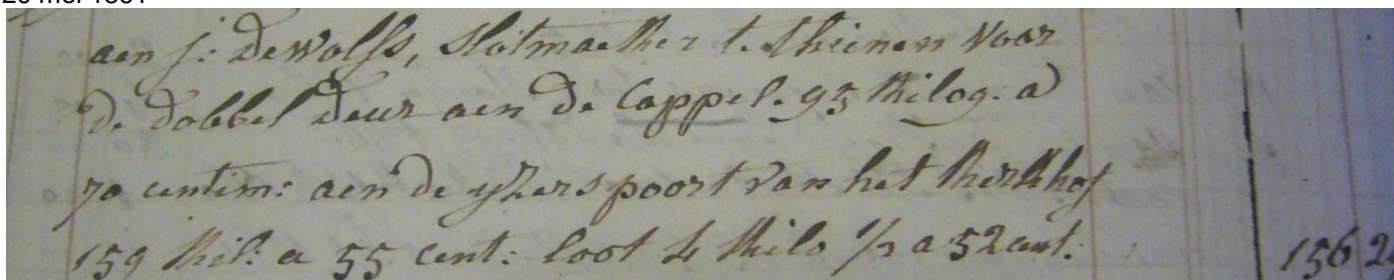 aen j: Dewolfs, Slotmaeker t. thienen voor
de dobbel deur aen de Cappel. 95 kilog. a
70 centim: aen de yzers poort van het kerkhof
159 kil: a 55 cent: loot 4 kilo 1/2 a 52 cent: 156 2